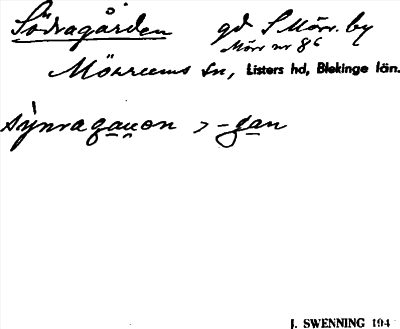 Södragården gd S Mörr. by
Mörr nr 86
Mörrums sn, Listers hd, Blekinge län.
sỳnragauon > -gan
J. SWENNING 194